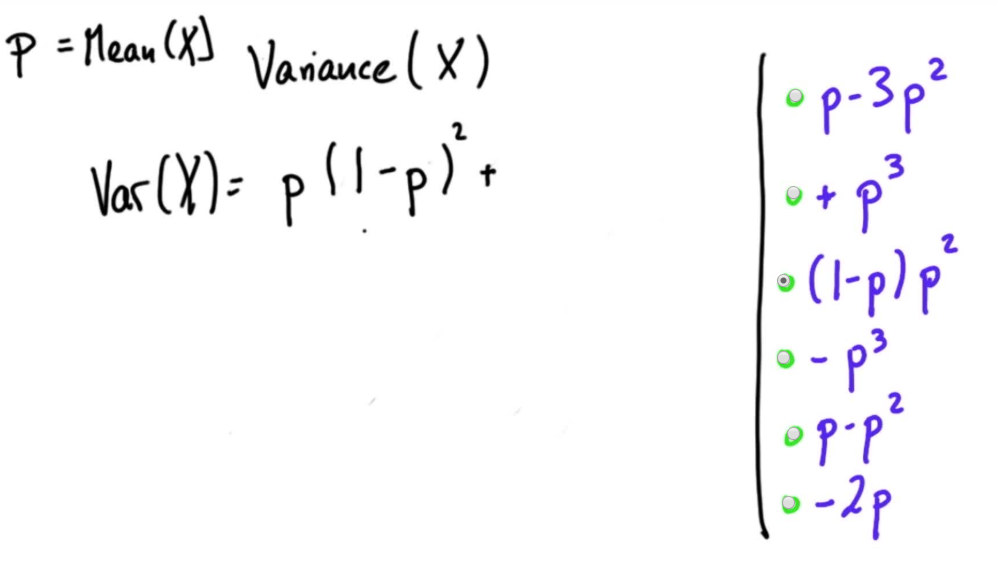 p = Mean(X) Variance(X)
Var(X) = p(1-p)² +
p-3p²
+ p³
(1-p)p²
- p³
p-p²
-2p